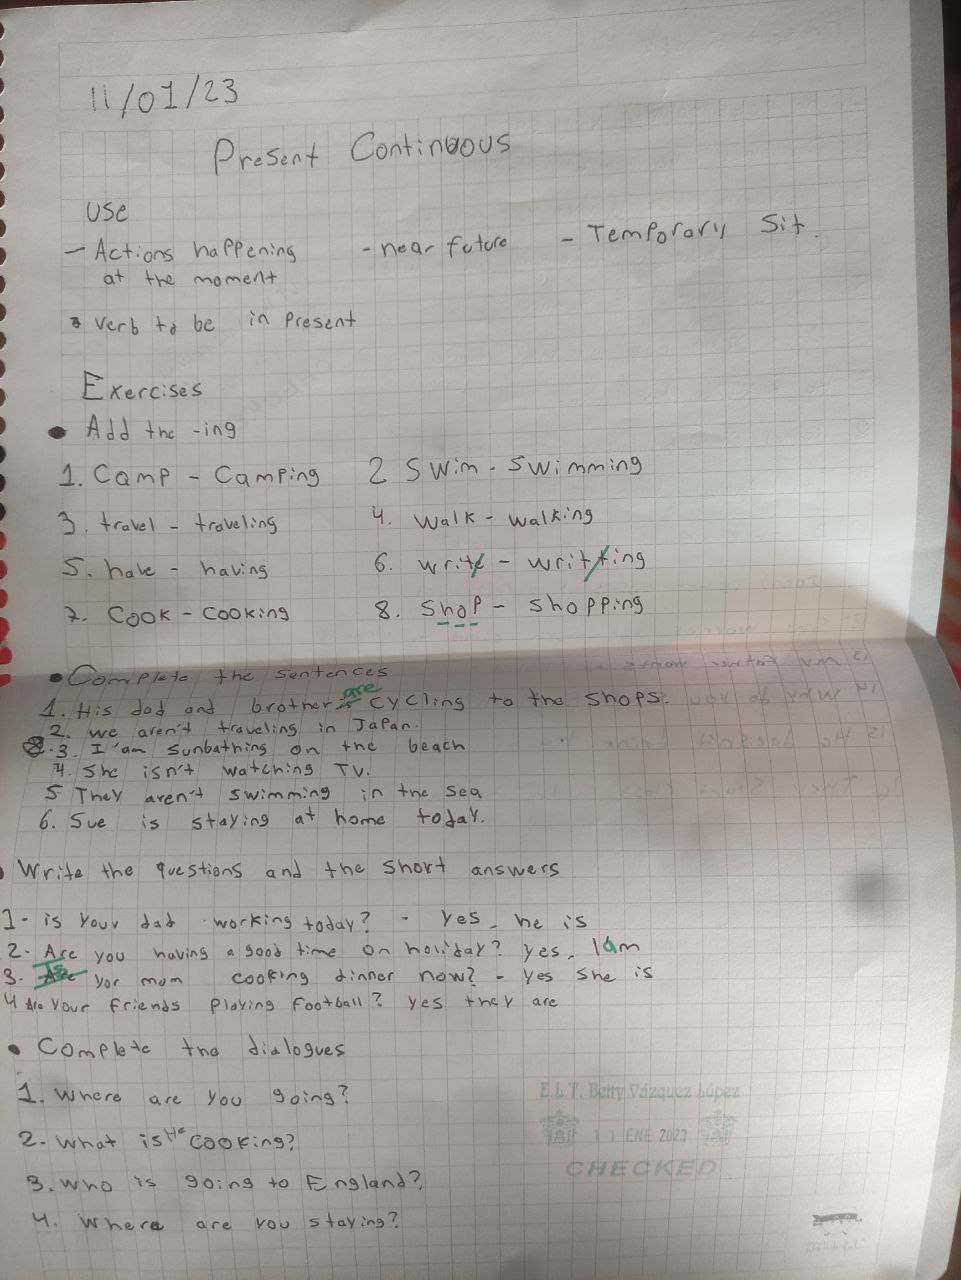 11/01/23
Present Continuous
Use
- Actions happening - near future - Temporary Sit.
at the moment
verb to be in present
Exercises
• Add the -ing
1. Camp - Camping 2 Swim - Swimming
3. travel - traveling 4. Walk - walking
5. have - having 6. write - writting
7. Cook - Cooking 8. Shop - Shopping
• Complete the sentences
1. His dad and brother are cycling to the shops.
2. we aren't traveling in Japan.
3. I'am sunbathing on the beach
4. She isn't watching TV.
5 They aren't swimming in the sea
6. Sue is staying at home today.
• Write the questions and the short answers
1- is your dad working today? - Yes, he is
2- Are you having a good time on holiday? Yes, I am
3- Is yor mom cooking dinner now? - Yes she is
4 Are Your friends Playing football? Yes they are
• Complete the dialogues
1. Where are you going?
2- What is He cooking?
3. Who is going to England?
4. Where are you staying?
E.L.T. Betty Vázquez López
11 ENE 2023
CHECKED